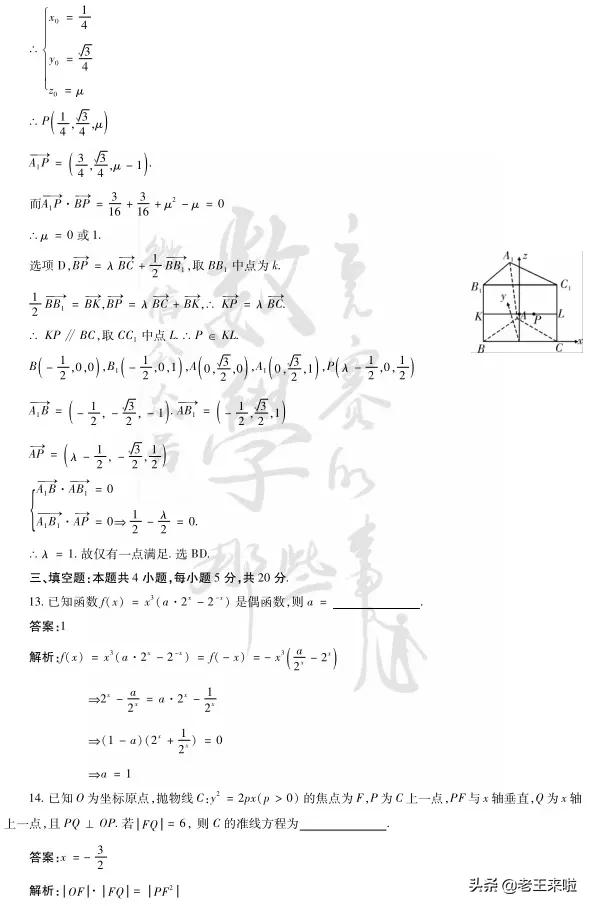 ∴ { x₀ = 1/4
y₀ = √3/4
z₀ = μ
∴ P(1/4, √3/4, μ)
A₁P→ = (3/4, √3/4, μ − 1).
而A₁P→ · BP→ = 3/16 + 3/16 + μ² − μ = 0
∴ μ = 0 或 1.
选项 D, BP→ = λ BC→ + 1/2 BB₁→, 取 BB₁ 中点为 k.
1/2 BB₁→ = BK→, BP→ = λ BC→ + BK→, ∴ KP→ = λ BC→.
∴ KP ∥ BC, 取 CC₁ 中点 L. ∴ P ∈ KL.
B(−1/2, 0, 0), B₁(−1/2, 0, 1), A(0, √3/2, 0), A₁(0, √3/2, 1), P(λ − 1/2, 0, 1/2)
A₁B→ = (−1/2, −√3/2, −1). AB₁→ = (−1/2, √3/2, 1)
AP→ = (λ − 1/2, −√3/2, 1/2)
{ A₁B→ · AB₁→ = 0
A₁B₁→ · AP→ = 0 ⇒ 1/2 − λ/2 = 0.
∴ λ = 1. 故仅有一点满足. 选 BD.
A₁ z
B₁ C₁
y
K A P L
B C x
三、填空题:本题共 4 小题,每小题 5 分,共 20 分.
13. 已知函数 f(x) = x³(a · 2ˣ − 2⁻ˣ) 是偶函数,则 a = ________.
答案:1
解析:f(x) = x³(a · 2ˣ − 2⁻ˣ) = f(−x) = −x³(a/2ˣ − 2ˣ)
⇒2ˣ − a/2ˣ = a · 2ˣ − 1/2ˣ
⇒(1 − a)(2ˣ + 1/2ˣ) = 0
⇒a = 1
14. 已知 O 为坐标原点,抛物线 C:y² = 2px(p > 0) 的焦点为 F,P 为 C 上一点,PF 与 x 轴垂直,Q 为 x 轴
上一点,且 PQ ⊥ OP. 若 |FQ| = 6, 则 C 的准线方程为________.
答案:x = −3/2
解析:|OF| · |FQ| = |PF²|
数学竞赛的那些事儿
头条 @老王来啦